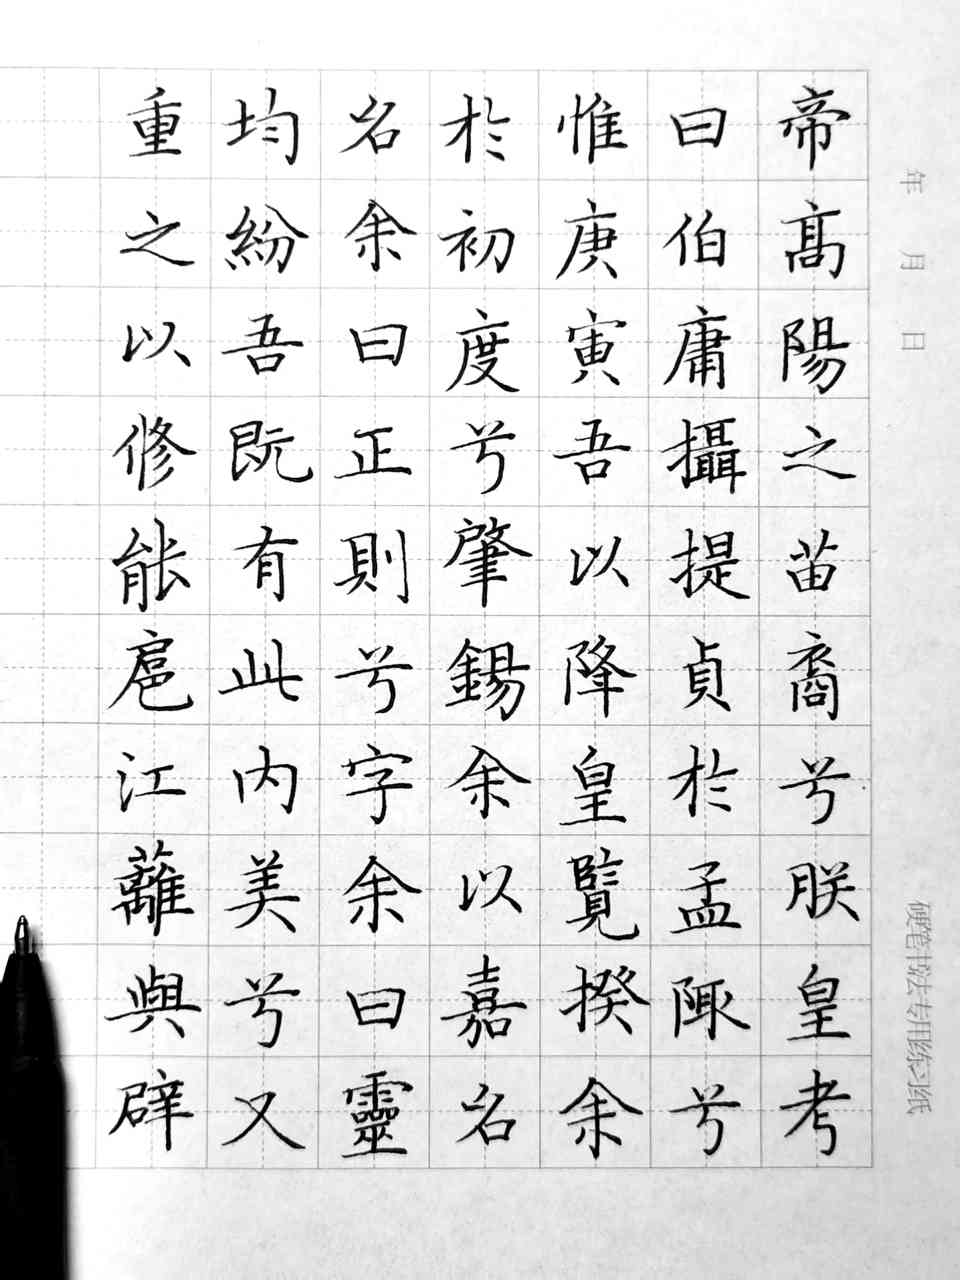 帝髙陽之苗裔兮朕皇考
曰伯庸攝提貞於孟陬兮
惟庚寅吾以降皇覽揆余
於初度兮肇錫余以嘉名
名余曰正則兮字余曰靈
均紛吾既有此内美兮又
重之以修能扈江離與辟
年 月 日
硬笔书法专用练习纸